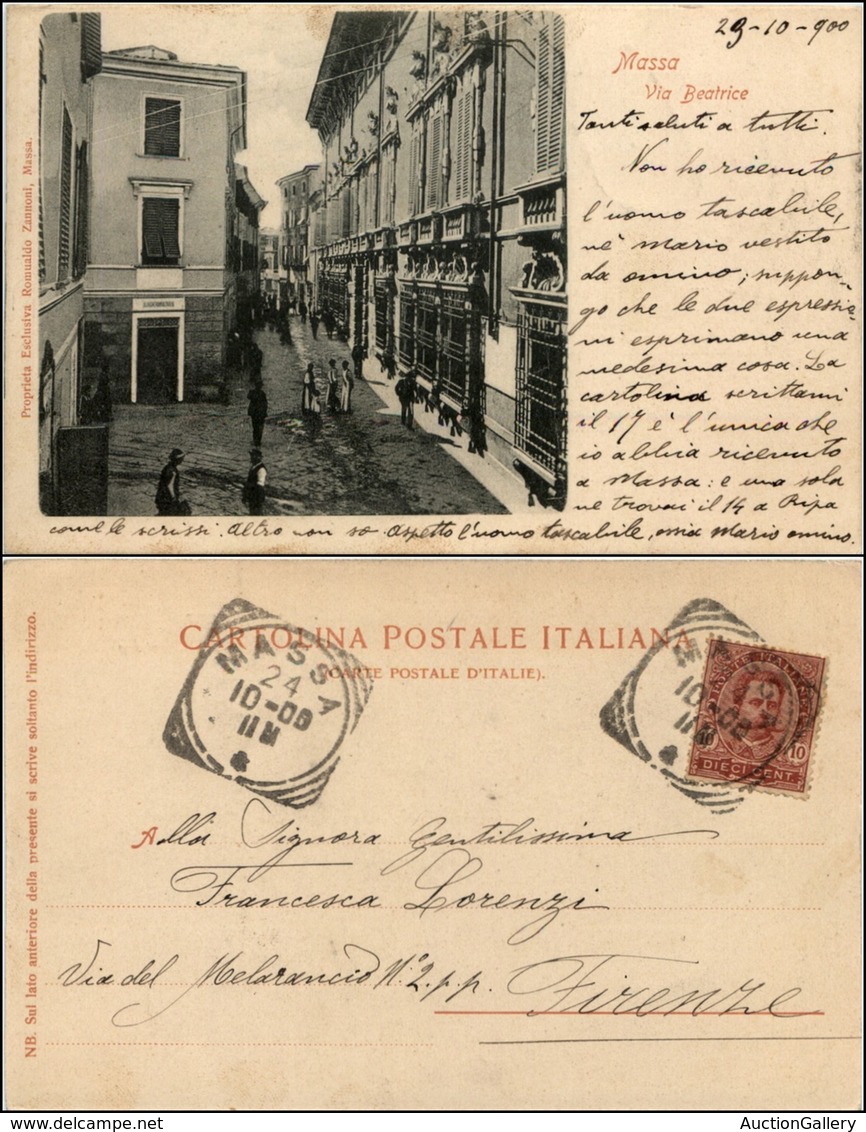 23-10-900
Massa
Via Beatrice
Proprieta Esclusiva Romualdo Zannoni, Massa.
Tanti saluti a tutti.
Non ho ricevuto
l'uomo tascabile,
nè Mario vestito
da omino; suppon-
go che le due espressio-
ni esprimano una
medesima cosa. La
cartolina scrittami
il 17 è l'unica che
io abbia ricevuto
a Massa: e una sola
ne trovai il 14 a Ripa
come le scrissi. Altro non so. Aspetto l'uomo tascabile, ossia Mario omino.
CARTOLINA POSTALE ITALIANA
(CARTE POSTALE D'ITALIE).
MASSA
24
10-00
11 M
MASSA
10-00
11 M
POSTE ITALIANE
10
10
DIECI CENT.
NB. Sul lato anteriore della presente si scrive soltanto l'indirizzo.
Alla Signora Gentilissima
Francesca Lorenzi
Via del Melarancio N.º 2. p.p.
Firenze
AuctionGallery